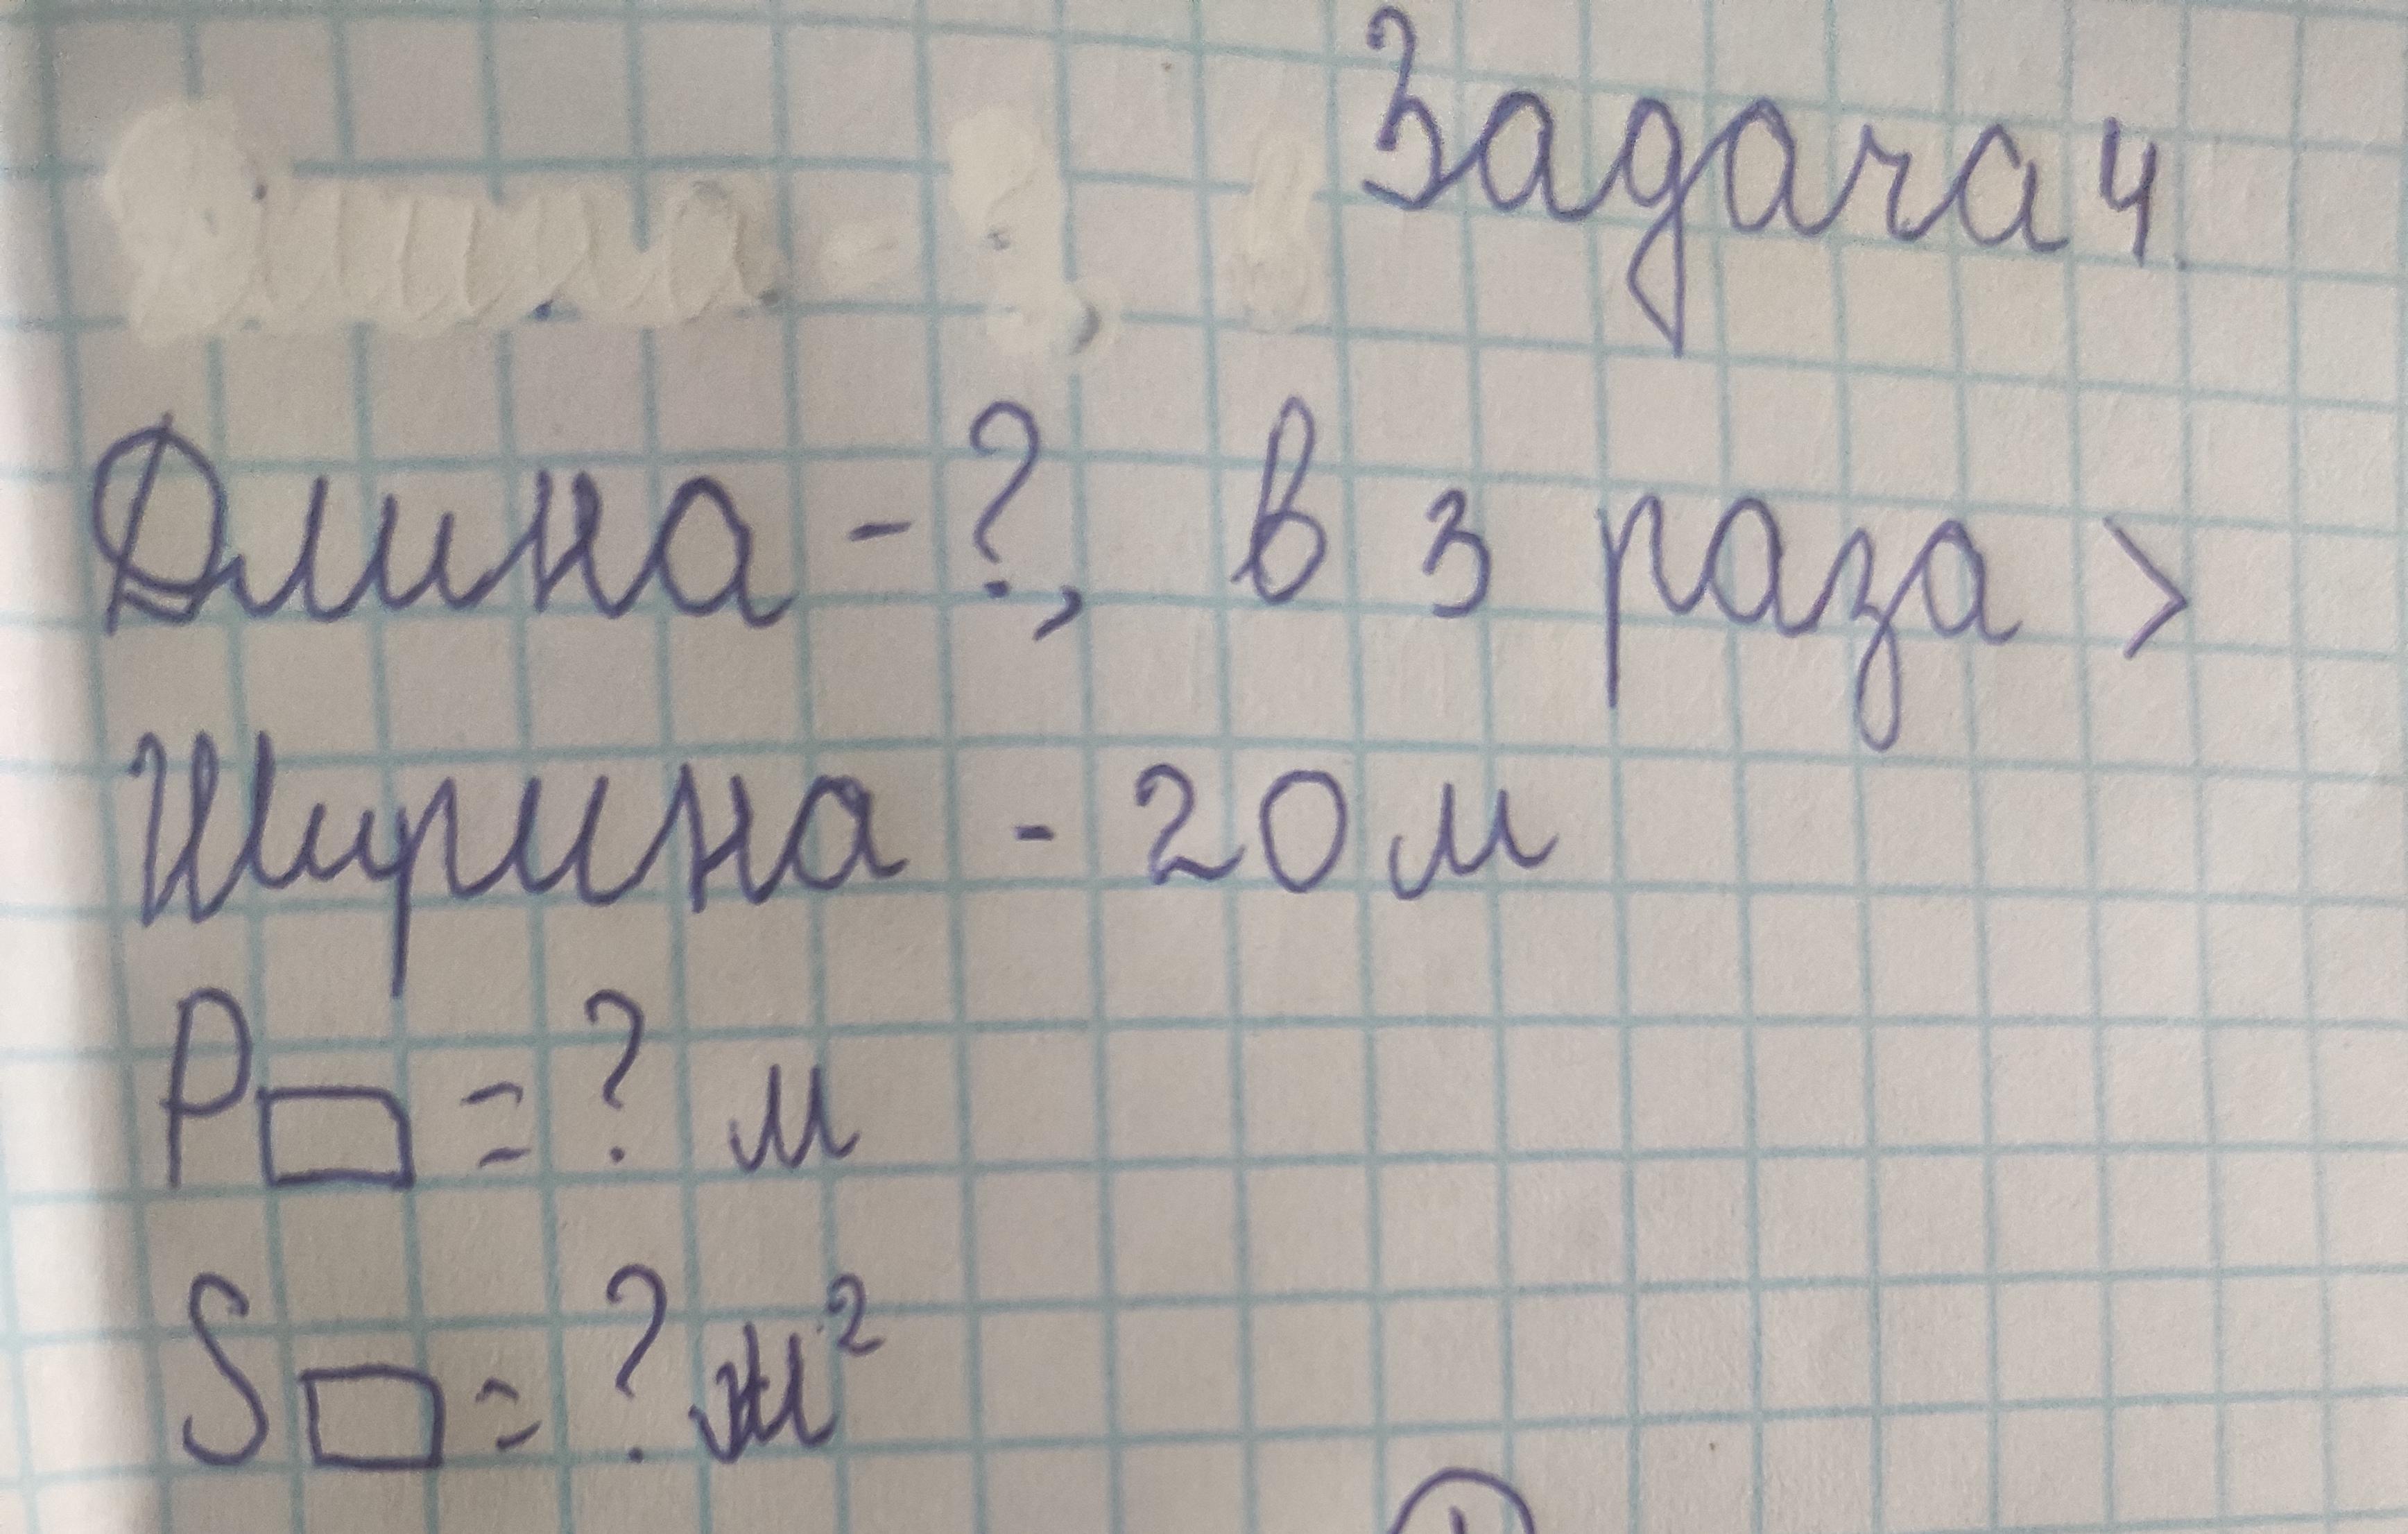 Задача 4.
Длина - ?, в 3 раза >
Ширина - 20 м
P▭ = ? м
S▭ = ? м²